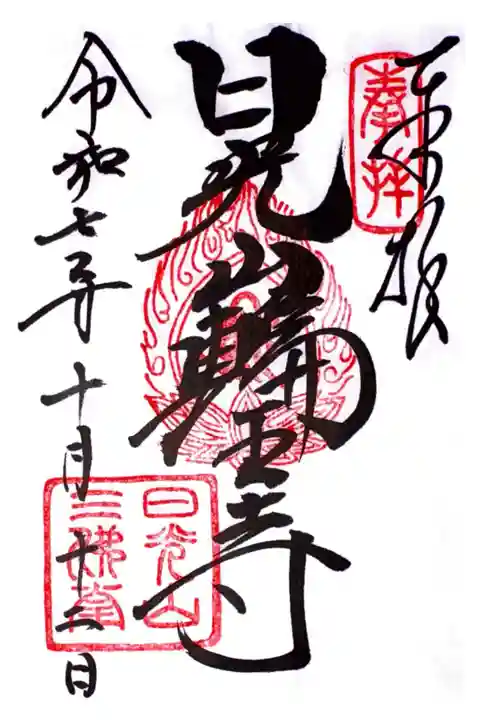 奉拝
日光山輪王寺
令和七年十月十二日
日光山
三佛堂